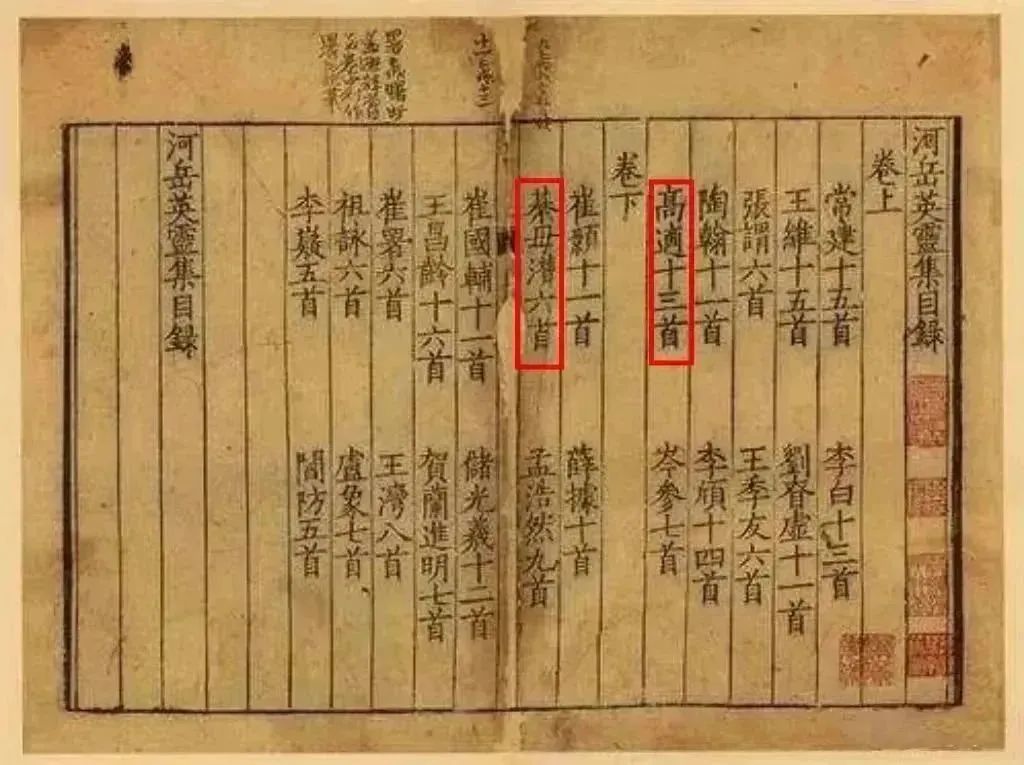 河岳英靈集目錄
卷上
常建十五首 李白十三首
王維十五首 劉眘虛十一首
張謂六首 王季友六首
陶翰十一首 李頎十四首
髙適十三首 岑參七首
卷下
崔顥十一首 薛據十首
綦毋潛六首 孟浩然九首
崔國輔十一首 儲光羲十二首
王昌齡十六首 賀蘭進明七首
崔署六首 王灣八首
祖詠六首 盧象七首
李嶷五首 閻防五首
河岳英靈集目錄